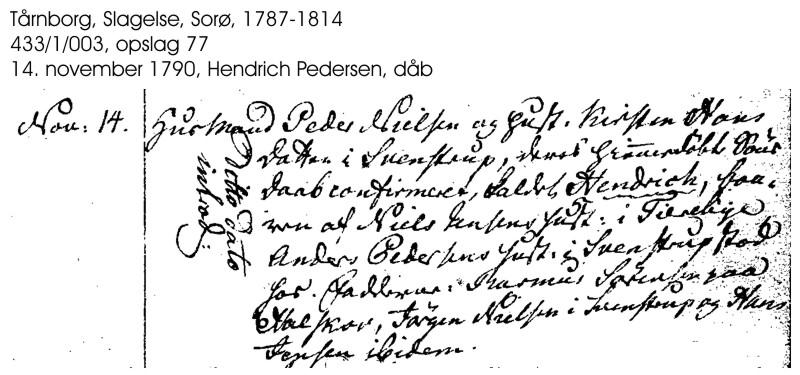 Tårnborg, Slagelse, Sorø, 1787-1814
433/1/003, opslag 77
14. november 1790, Hendrich Pedersen, dåb
Nov: 14. Husmand Peder Nielsen og Hust. Kirsten Hans
Datter i Svenstrup, deres hiemmedøbte Søns
Daab confirmeret, kaldet Hendrich, baa-
ren af Niels Jensens Hust: i Tiereby
Anders Pedersens Hust: i Svenstrup stod
hos. Fadderne: Rasmus Sørensen paa
Halskov, Jørgen Nielsen i Svenstrup og Hans
Jensen ibidem.
Ditto dato
introd: